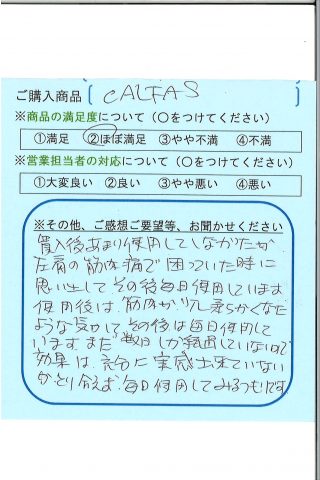 ご購入商品 [ CALFAS ]
※商品の満足度について（○をつけてください）
①満足 ②ほぼ満足 ③やや不満 ④不満
※営業担当者の対応について（○をつけてください）
①大変良い ②良い ③やや悪い ④悪い
※その他、ご感想ご要望等、お聞かせください
買入後あまり使用してしなかたが
左肩の筋体痛で困っていた時に
思い出してその後毎日使用しています
使用後は、筋体が少し柔らかくなた
ような気がして、その後は毎日使用して
いますまだ数日しか経過していないので
効果は、充分に実感出来ていない
がとり令えず、毎日使用してみるつもりです